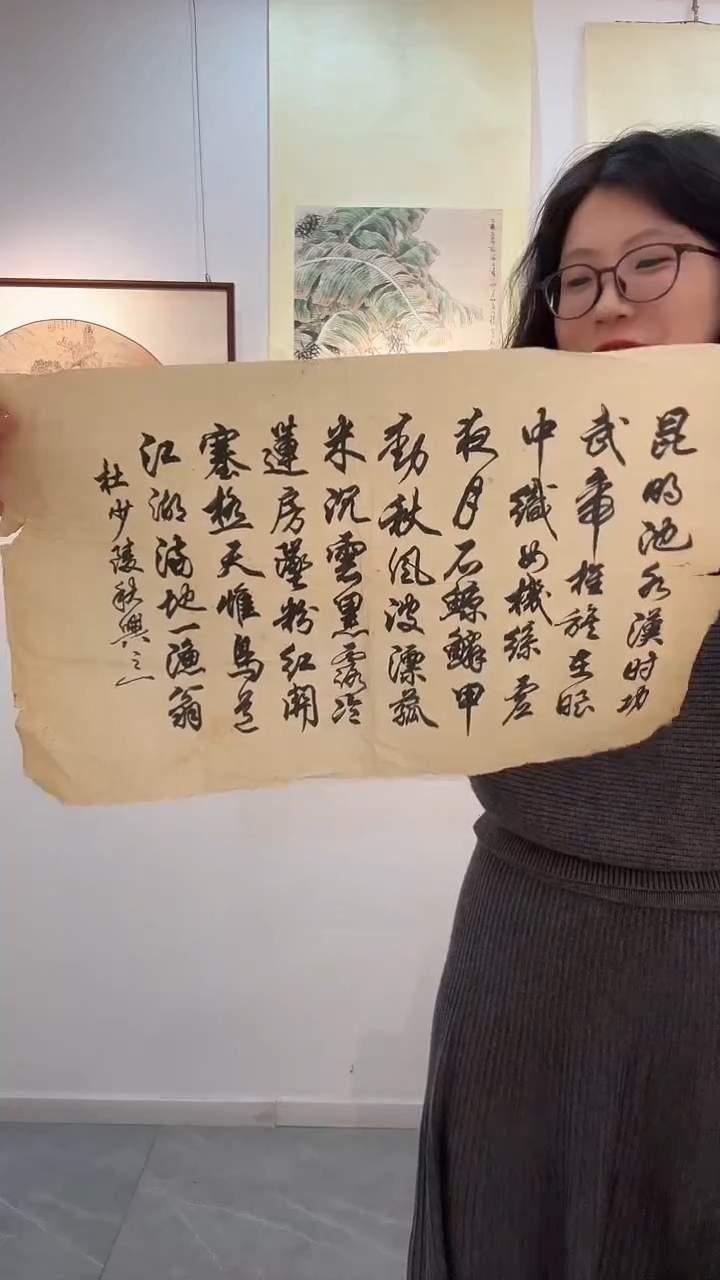 昆明池水漢时功
武帝旌旗在眼
中織女機絲虛
夜月石鯨鱗甲
動秋風波漂菰
米沉雲黑露冷
蓮房墜粉紅關
塞極天惟鳥道
江湖滿地一漁翁
杜少陵秋興之一